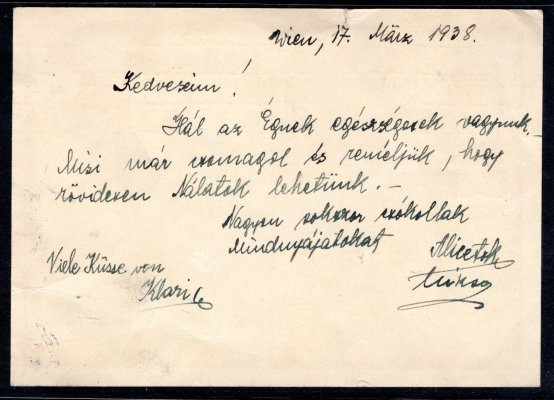 Wien, 17. März 1938.
Kedveseim!
Hál az Égnek egészségesek vagyunk
Misi már csomagol és reméljük, hogy
rövidesen Nálatok lehetünk. —
Nagyon sokszor csókollak
Mindnyájatokat
Alicetok
Viele Küsse von
Klari